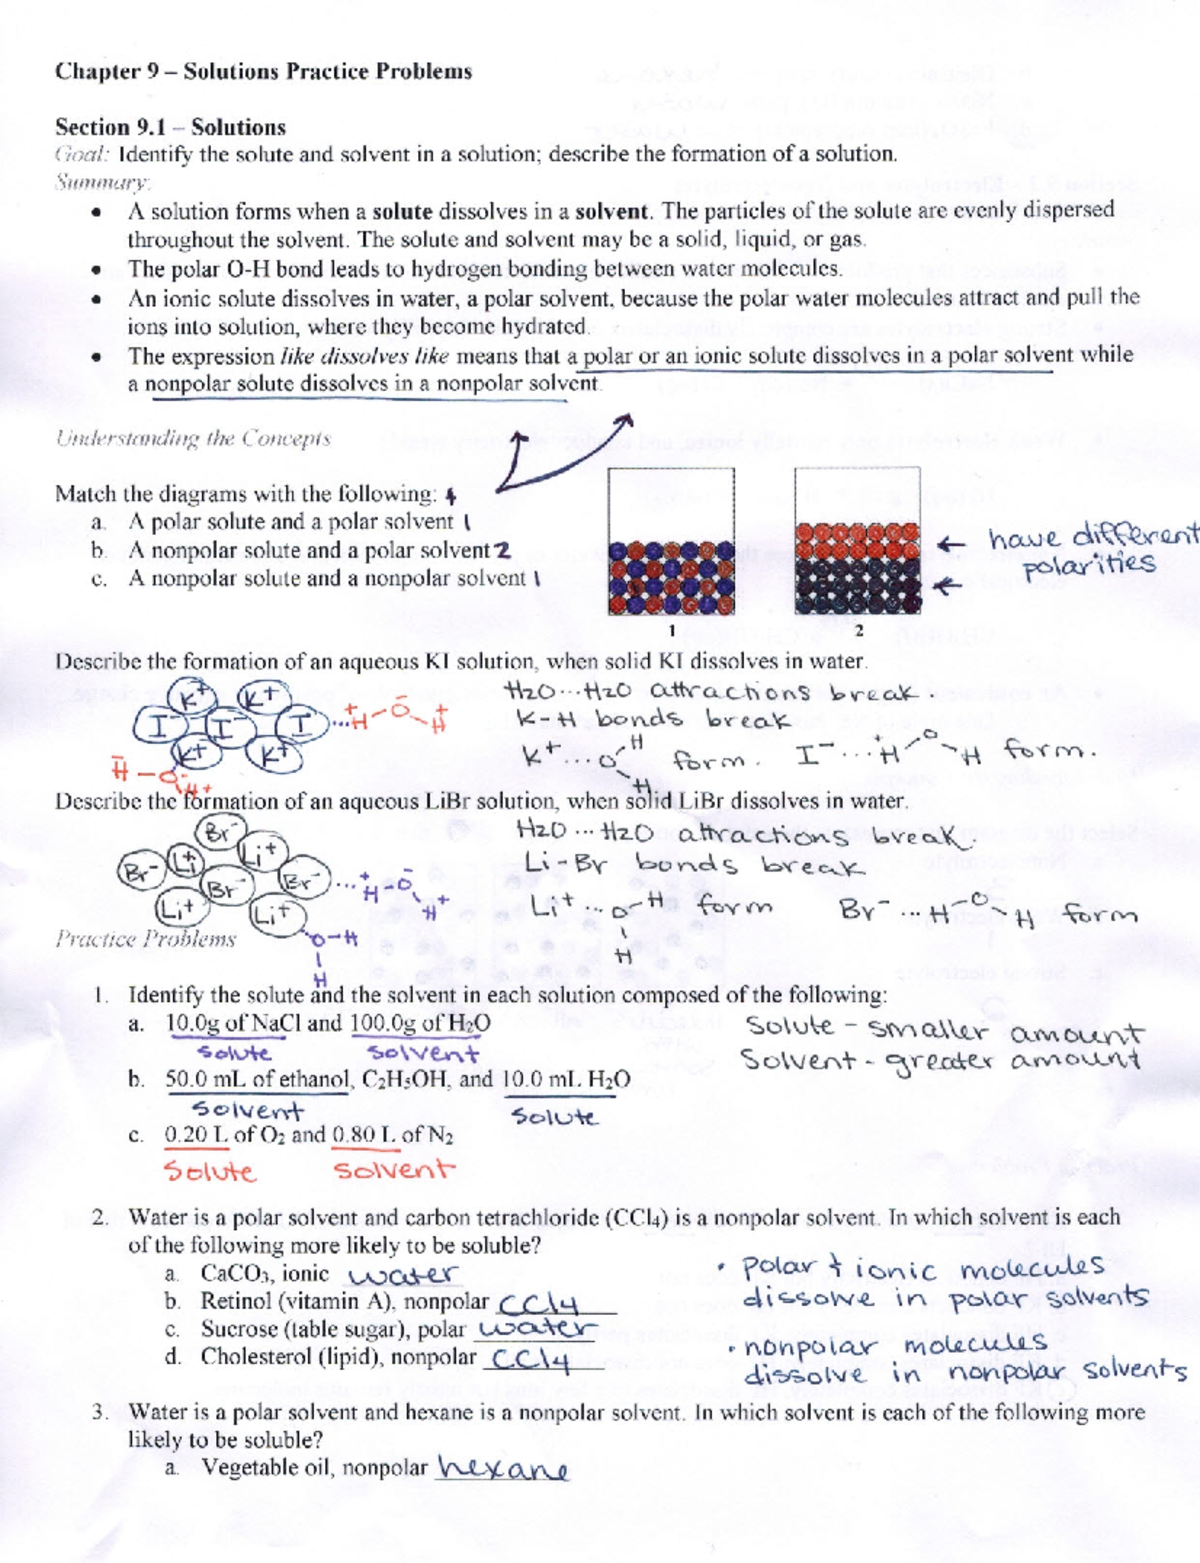 Chapter 9 – Solutions Practice Problems
Section 9.1 – Solutions
Goal: Identify the solute and solvent in a solution; describe the formation of a solution.
Summary:
• A solution forms when a solute dissolves in a solvent. The particles of the solute are evenly dispersed
throughout the solvent. The solute and solvent may be a solid, liquid, or gas.
• The polar O-H bond leads to hydrogen bonding between water molecules.
• An ionic solute dissolves in water, a polar solvent, because the polar water molecules attract and pull the
ions into solution, where they become hydrated.
• The expression like dissolves like means that a polar or an ionic solute dissolves in a polar solvent while
a nonpolar solute dissolves in a nonpolar solvent.
Understanding the Concepts
Match the diagrams with the following:
a. A polar solute and a polar solvent 1
b. A nonpolar solute and a polar solvent 2
c. A nonpolar solute and a nonpolar solvent 1
← have different
← polarities
1 2
Describe the formation of an aqueous KI solution, when solid KI dissolves in water.
K+ K+
I- I- I- ... +H - O- - H+
K+ K+
H - O- H+
H2O...H2O attractions break.
K-H bonds break
K+ ... O H H form. I- ... +H O- H form.
Describe the formation of an aqueous LiBr solution, when solid LiBr dissolves in water.
Br- Li+
Br- Li+ Br- Br- ... +H - O- H+
Li+ Li+
O-H
H
H2O...H2O attractions break.
Li-Br bonds break
Li+ ... O-H H form Br- ... H-O H form
Practice Problems
1. Identify the solute and the solvent in each solution composed of the following:
a. 10.0g of NaCl and 100.0g of H2O
solute solvent
b. 50.0 mL of ethanol, C2H5OH, and 10.0 mL H2O
solvent solute
c. 0.20 L of O2 and 0.80 L of N2
Solute solvent
Solute - smaller amount
Solvent - greater amount
2. Water is a polar solvent and carbon tetrachloride (CCl4) is a nonpolar solvent. In which solvent is each
of the following more likely to be soluble?
a. CaCO3, ionic water
b. Retinol (vitamin A), nonpolar CCl4
c. Sucrose (table sugar), polar water
d. Cholesterol (lipid), nonpolar CCl4
• polar + ionic molecules
dissolve in polar solvents
• nonpolar molecules
dissolve in nonpolar solvents
3. Water is a polar solvent and hexane is a nonpolar solvent. In which solvent is each of the following more
likely to be soluble?
a. Vegetable oil, nonpolar hexane